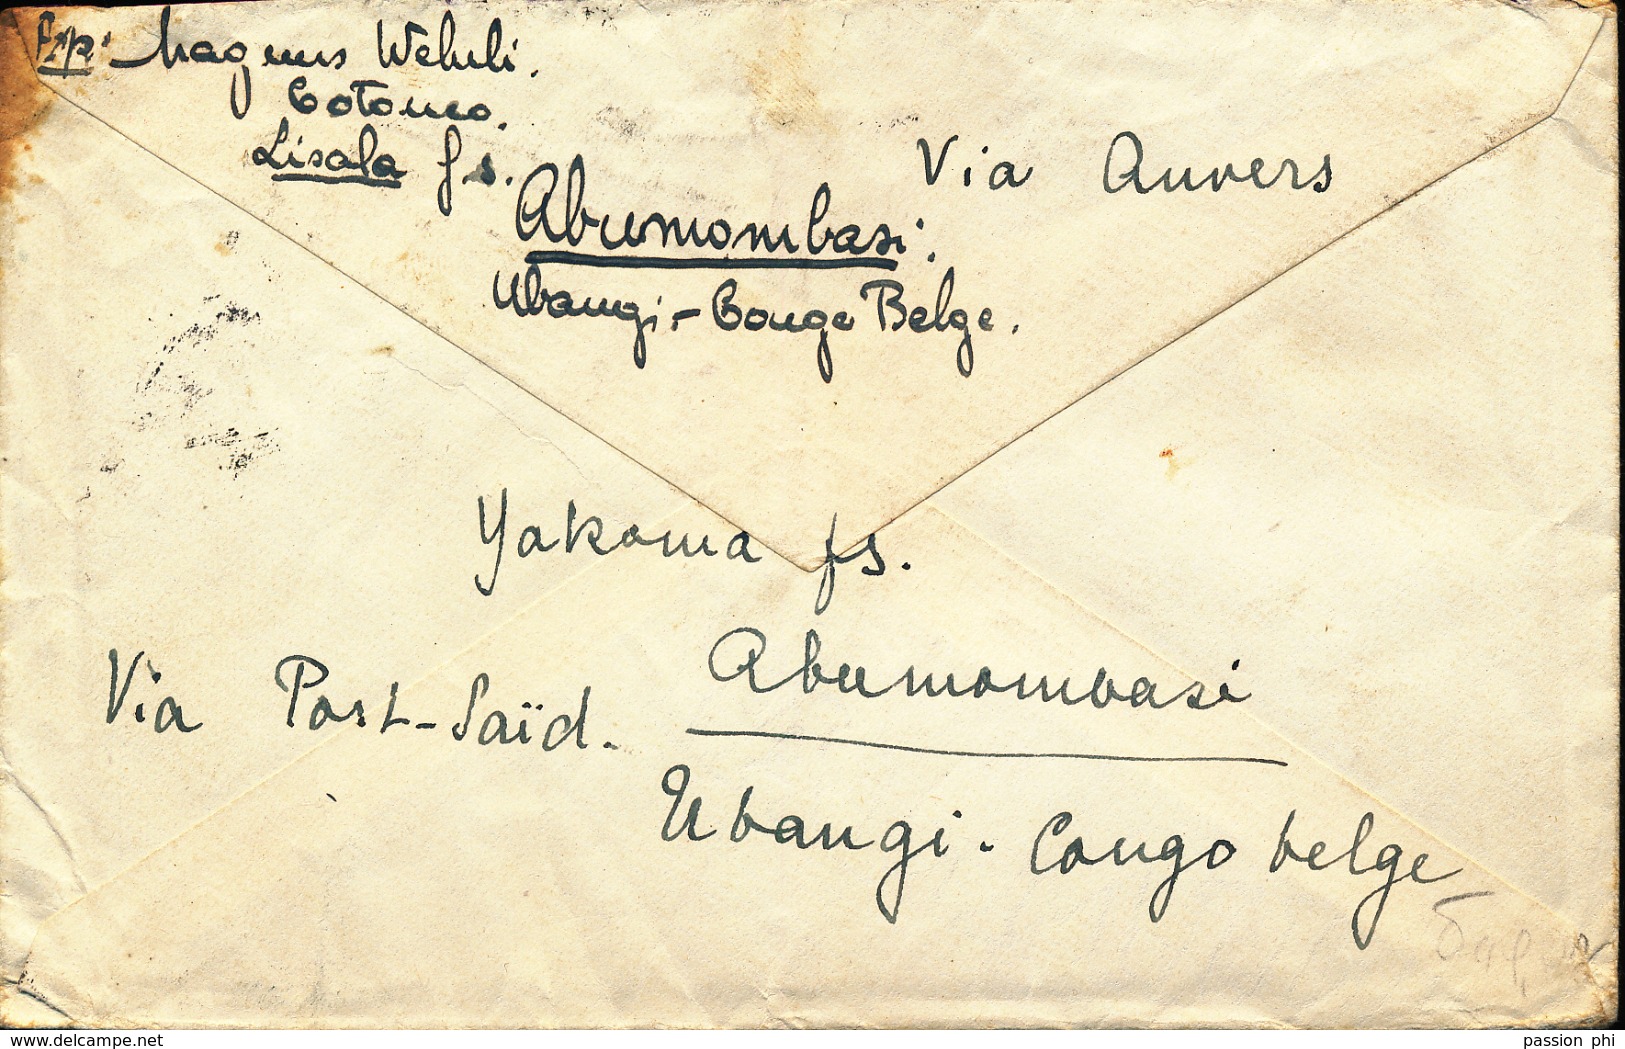 Exp: Magnus Wehrli.
Cotonco.
Lisala fs.
Abumombasi.
Ubangi - Congo Belge.
Via Anvers
Yakoma fs.
Abumombasi
Via Port-Saïd.
Ubangi. Congo belge
delcampe.net
passion phi